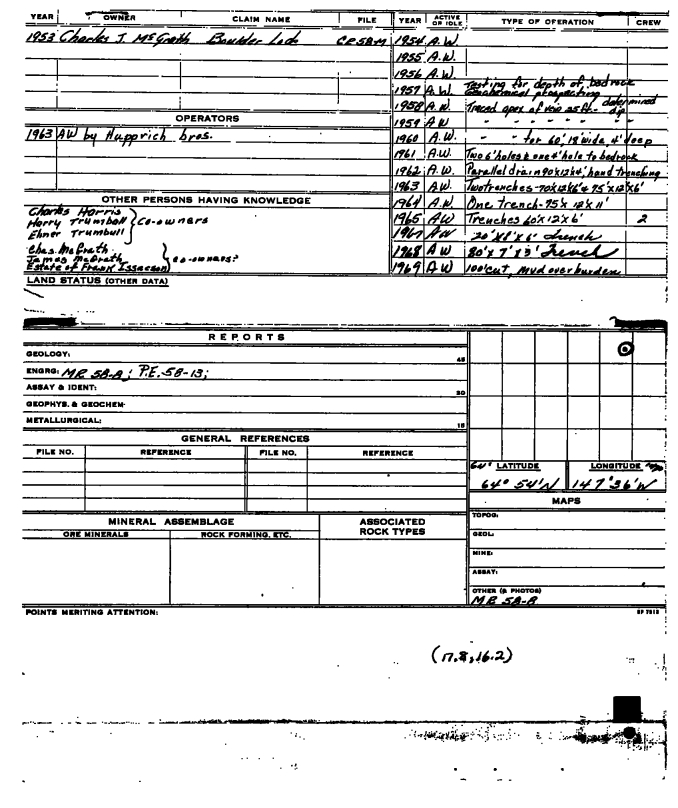 YEAR OWNER CLAIM NAME FILE YEAR ACTIVE OR IDLE TYPE OF OPERATION CREW
1953 Charles J. McGrath Boulder Lode 1954 A.W.
1955 A.W.
1956 A.W.
1957 A.W. Testing for depth of bedrock
Geochemical prospecting
1958 A.W. Traced apex of vein 25ft. - determined dip
OPERATORS 1959 AW " " " " "
1963 AW by Hupprich bros. 1960 A.W. " " for 60', 12' wide, 4' deep
1961 A.W. Two 6' holes & one 4' hole to bedrock
1962 A.W. Parallel drain 90x12x4', hand trenching
1963 A.W. Two trenches-70x12x6' & 75'x12'x6'
OTHER PERSONS HAVING KNOWLEDGE 1964 A.W. One trench-75'x 12'x 11'
Charles Harris 1965 AW Trenches 60x12x6' 2
Harry Trumbull } Co-owners
Elmer Trumbull 1967 AW 20'x8'x6' trench
Chas. McGrath 1968 AW 80'x 7'x 3' Trench
James McGrath } Co-owners?
Estate of Frank Issacson 1969 AW 100' cut, mud overburden
LAND STATUS (OTHER DATA)
REPORTS
GEOLOGY: 45
ENGRG: MR 58-A; P.E. 58-13;
ASSAY & IDENT: 30
GEOPHYS. & GEOCHEM:
METALLURGICAL: 15
GENERAL REFERENCES
FILE NO. REFERENCE FILE NO. REFERENCE
64° LATITUDE LONGITUDE
64° 54'N 147°36'W
MAPS
MINERAL ASSEMBLAGE ASSOCIATED ROCK TYPES TOPOG:
ORE MINERALS ROCK FORMING, ETC. GEOL:
MINE:
ASSAY:
OTHER (& PHOTOS)
MR 58-A
POINTS MERITING ATTENTION:
(17.8,16.2)